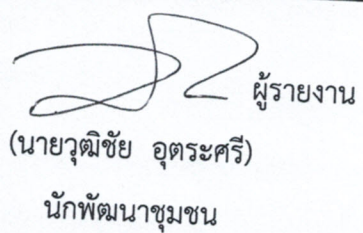 ผู้รายงาน
(นายวุฒิชัย อุตระศรี)
นักพัฒนาชุมชน